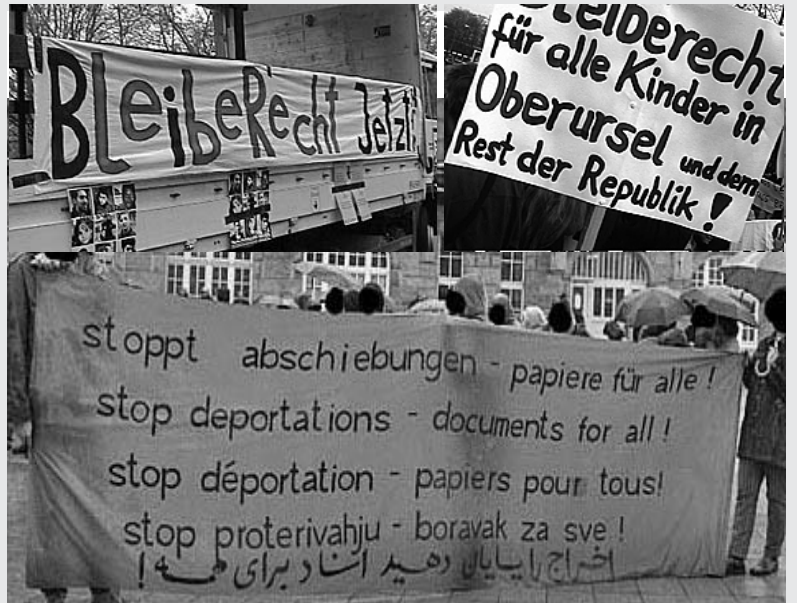 BleibeRecht Jetzt!
Bleiberecht
für alle Kinder in
Oberursel und dem
Rest der Republik!
stoppt abschiebungen - papiere für alle !
stop deportations - documents for all !
stop déportation - papiers pour tous!
stop proterivahju - boravak za sve !
اخراج را پایان دهید اسناد برای همه !